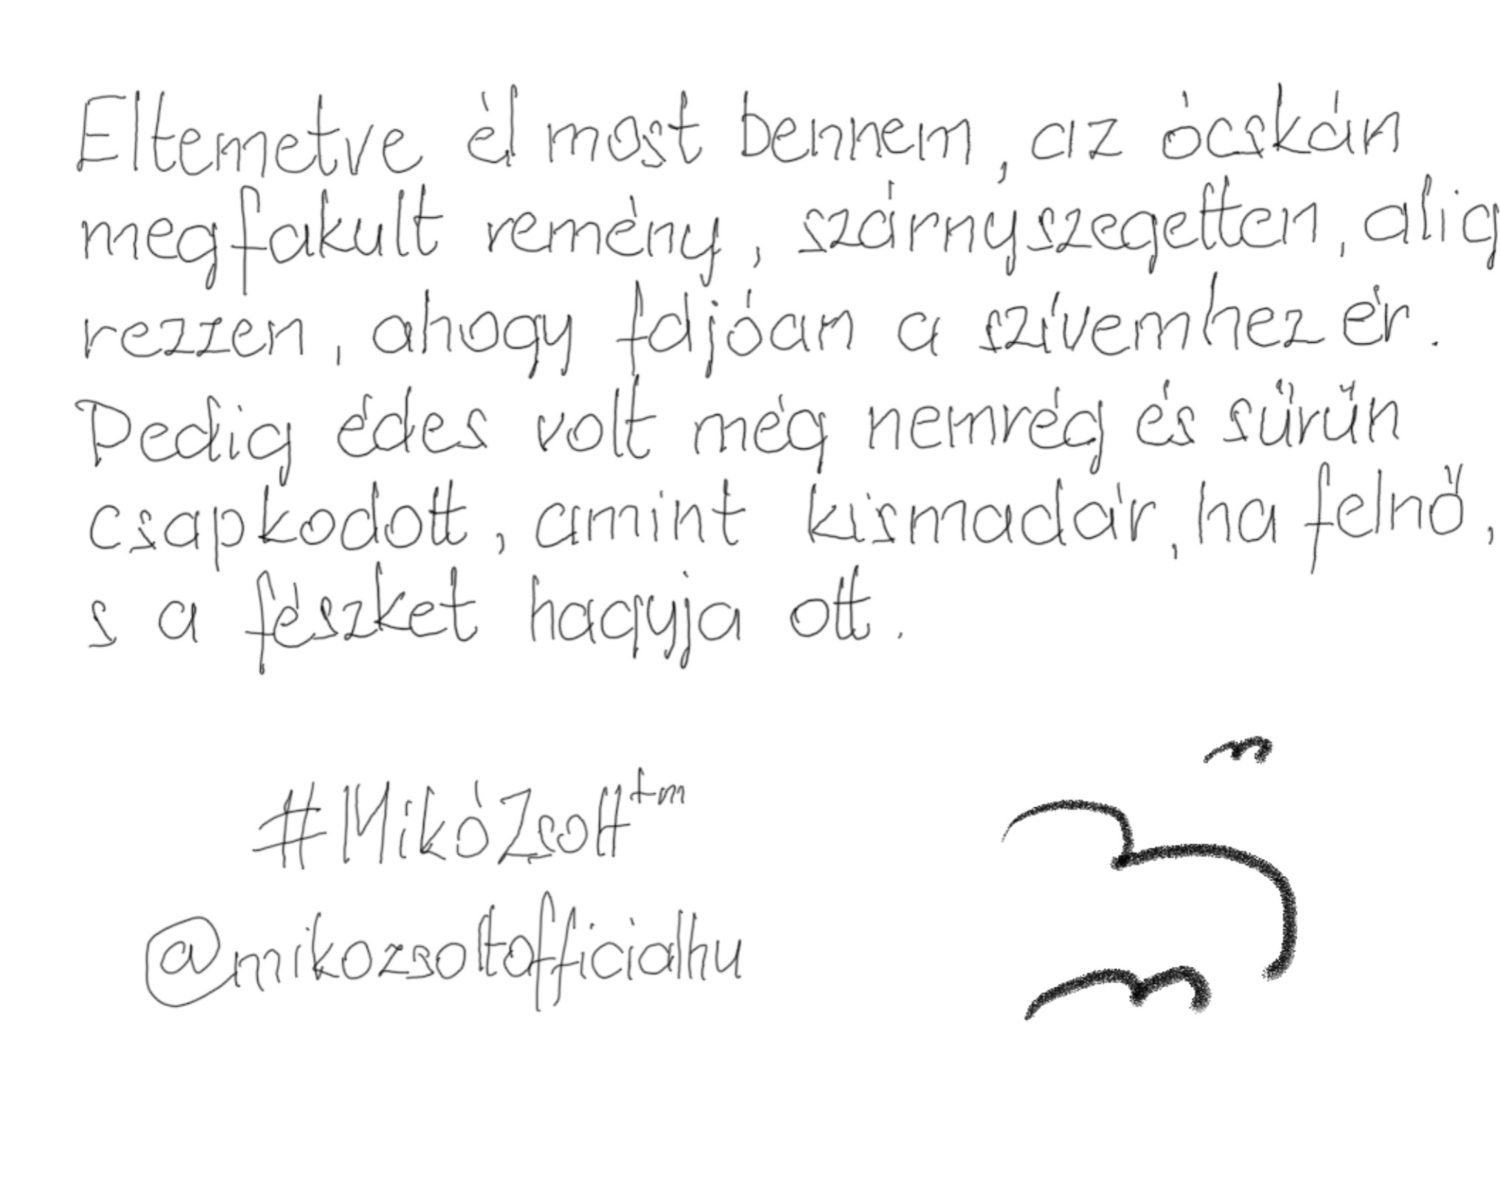 Eltemetve él most bennem, az ócskán
megfakult remény, szárnyszegetten, alig
rezzen, ahogy fájóan a szívemhez ér.
Pedig édes volt még nemrég és sűrűn
csapkodott, amint kismadár, ha felnő,
s a fészket hagyja ott.
#MikóZsolt™
@mikozsoltofficialhu